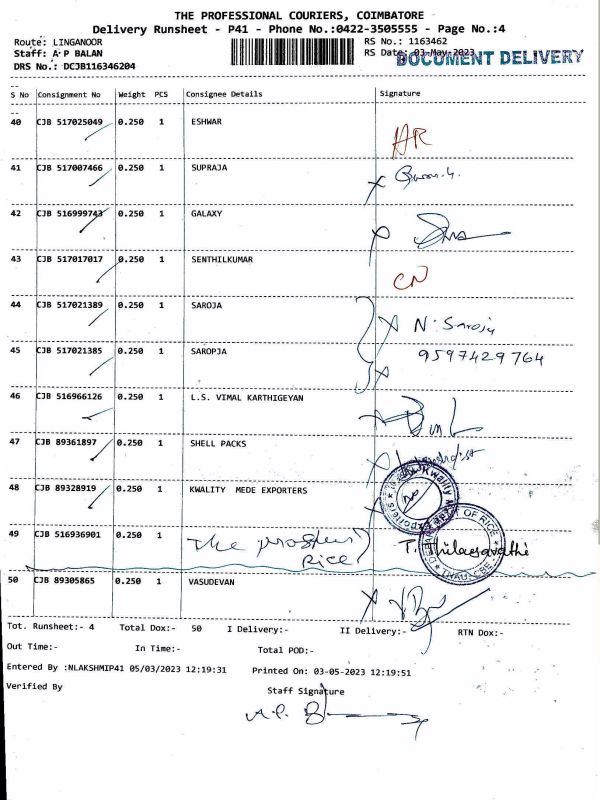 THE PROFESSIONAL COURIERS, COIMBATORE
Delivery Runsheet - P41 - Phone No.:0422-3505555 - Page No.:4
Route: LINGANOOR RS No.: 1163462
Staff: A P BALAN RS Date: 03-May-2023 DOCUMENT DELIVERY
DRS No.: DCJB116346204
S No Consignment No Weight PCS Consignee Details Signature
40 CJB 517025049 0.250 1 ESHWAR
41 CJB 517007466 0.250 1 SUPRAJA
42 CJB 516999743 0.250 1 GALAXY
43 CJB 517017017 0.250 1 SENTHILKUMAR
44 CJB 517021389 0.250 1 SAROJA N. Saroja
45 CJB 517021385 0.250 1 SAROPJA 9597429764
46 CJB 516966126 0.250 1 L.S. VIMAL KARTHIGEYAN
47 CJB 89361897 0.250 1 SHELL PACKS
48 CJB 89328919 0.250 1 KWALITY MEDE EXPORTERS Kwality Mede Exporters
49 CJB 516936901 0.250 1 The
Rice OF RICE
50 CJB 89305865 0.250 1 VASUDEVAN
Tot. Runsheet:- 4 Total Dox:- 50 I Delivery:- II Delivery:- RTN Dox:-
Out Time:- In Time:- Total POD:-
Entered By :NLAKSHMIP41 05/03/2023 12:19:31 Printed On: 03-05-2023 12:19:51
Verified By Staff Signature